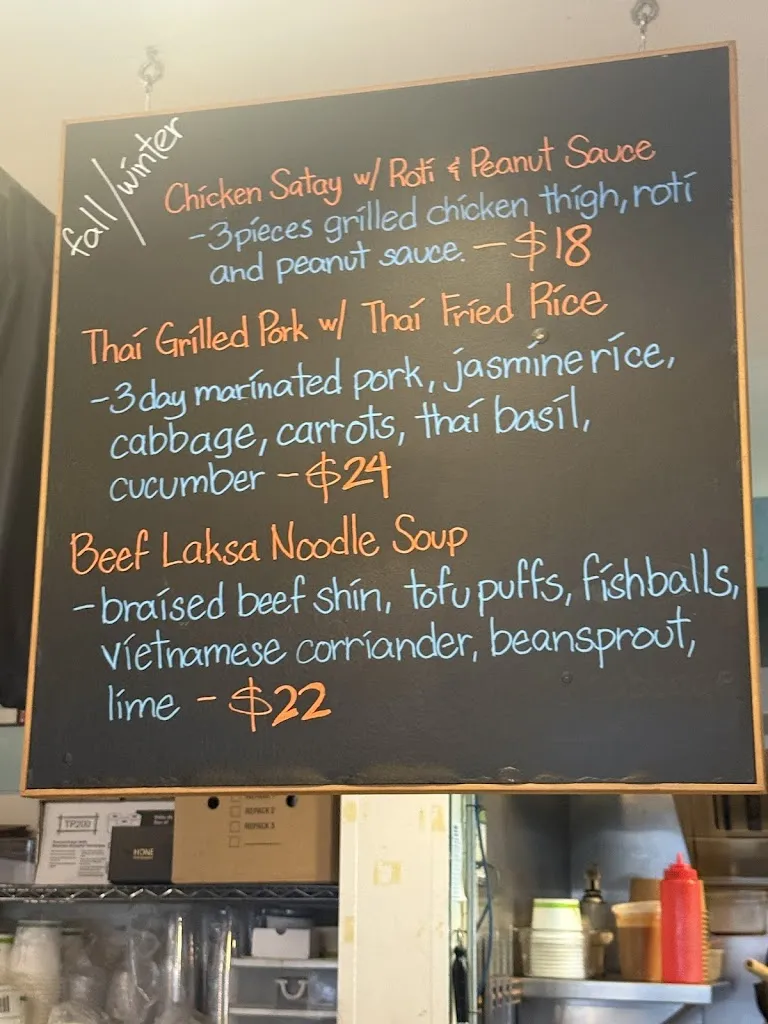 fall/winter
Chicken Satay w/ Roti & Peanut Sauce
-3 pieces grilled chicken thigh, roti
and peanut sauce. - $18
Thai Grilled Pork w/ Thai Fried Rice
-3 day marinated pork, jasmine rice,
cabbage, carrots, thai basil,
cucumber - $24
Beef Laksa Noodle Soup
-braised beef shin, tofu puffs, fishballs,
vietnamese corriander, beansprout,
lime - $22
TP200
HONE
REPACK 2
REPACK 3